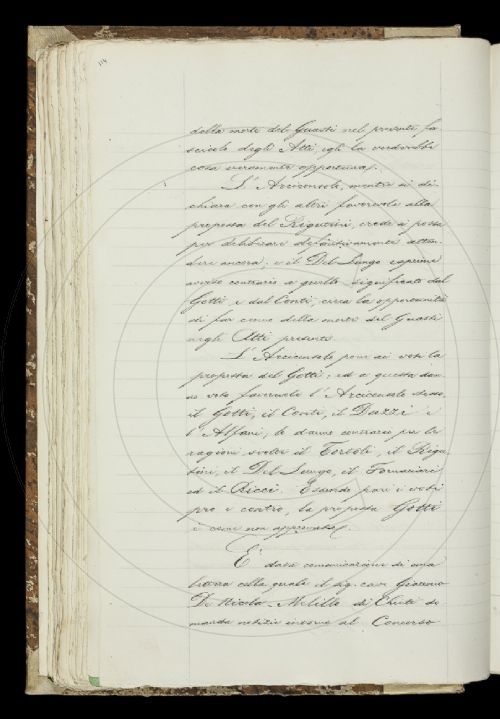 114
della morte del Guasti nel presente fa
scicolo degli Atti egli la crederebbe
cosa veramente opportuna.
L'Arciconsolo, mentre si di
chiara con gli altri favorevole alla
proposta del Rigutini, crede si possa
per deliberare definitivamente atten
dere ancora, e il Del Lungo esprime
avviso contrario a quello significato dal
Gotti e dal Conti, circa la opportunità
di far cenno della morte del Guasti
negli Atti presenti.
L'Arciconsolo pone ai voti la
proposta del Gotti; ed a questa dan
no voto favorevole l'Arciconsolo stesso,
il Gotti, il Conti, il Dazzi e
l'Alfani, lo danno contrario per le
ragioni svolte il Tortoli, il Rigu
tini, il Del Lungo, il Fornaciari
ed il Ricci. Essendo pari i voti
pro e contro, la proposta Gotti
è come non approvata.
È data comunicazione di una
lettera colla quale il sig. cav. Giacomo
De Nicola Melilla di Chieti do
manda notizie intorno al Concorso